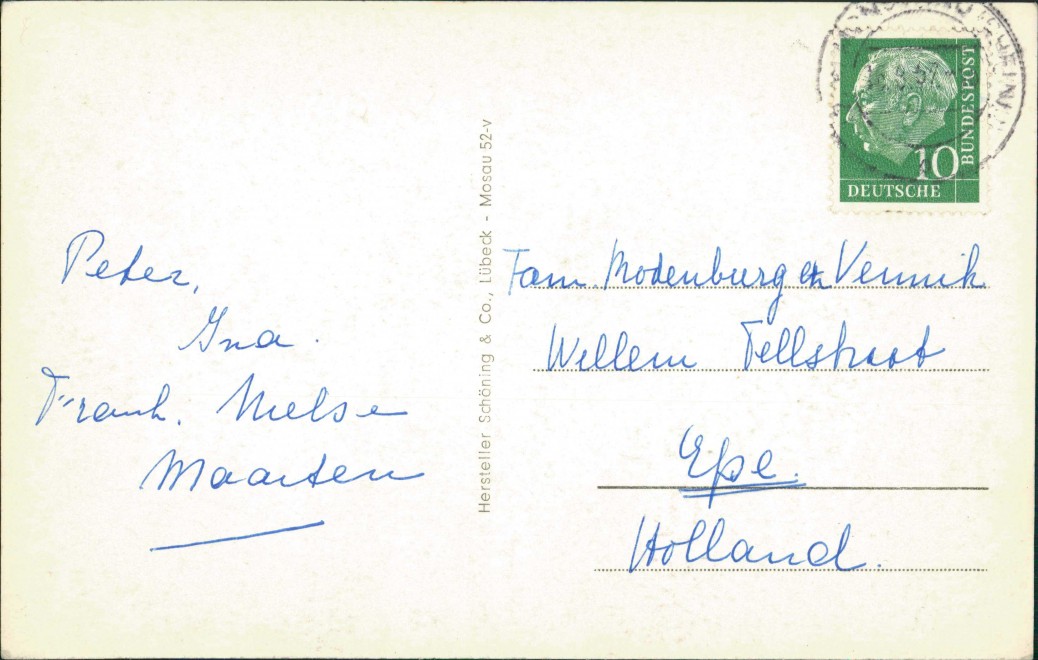 Peter,
Ina.
Frank. Nielse
Maarten
Hersteller Schöning & Co., Lübeck - Mosau 52-v
10
DEUTSCHE
BUNDESPOST
Fam. Modenburg en Vennik
Willem Tellstraat
Epe.
Holland.